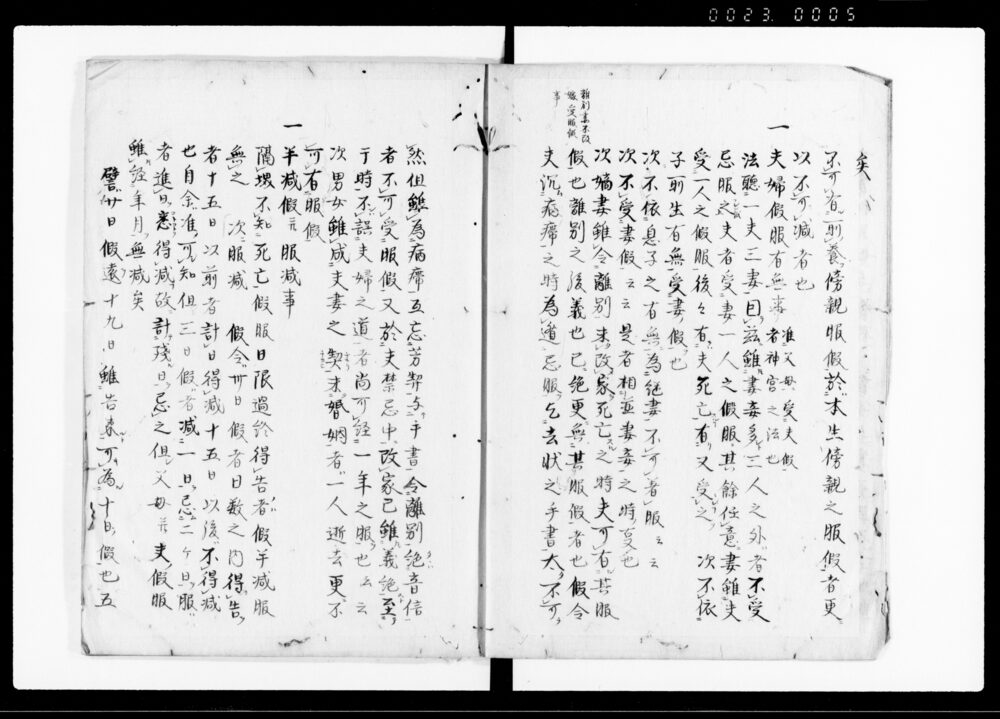 0023. 0005
矣
不可有、則養傍親服假於本生傍親之服假者更
以不可減者也
一 夫婦假服有無事 准父母受夫假者神宮之法也
法聽一夫三妻因茲雖妻妾多三人之外者不受
忌服之夫者受妻一人之假服其餘任意妻雖夫
受一人之假服後々有夫死亡有又受之 次不依
子所生有無受妻假也
次不依息子之有無為絕妻不可著服云云
次不受妻假云云是者相並妻妾之時變也
次嫡妻雖令離別未改家死亡之時夫可有其服
假也離別之後義也已絕更無其服假者也假令
夫沉病癘之時為道忌服乞去狀之手書大不可
然但雖為病癘互忘芳契与手書令離別絕音信
者不可受服假又於夫禁忌中改家已雖義絕至
于時不誤夫婦之道者尚可経一年之服也云云
次男女雖成夫妻之契未婚姻者一人逝去更不
可有服假
一 半減假并服減事
隔壞不知死亡假服日限過後得告者假半減服
無之 次服減 假令卅日假者日数之内得告
者十五日以前者計日得減十五日以後不得減
也自余准可知但三日假者減一日忌二ケ日服
者進日悉得減故計殘日忌之但父母并夫假服
雖経年月無減矣
譬卅日假遠十九日雖告来可為十日假也五